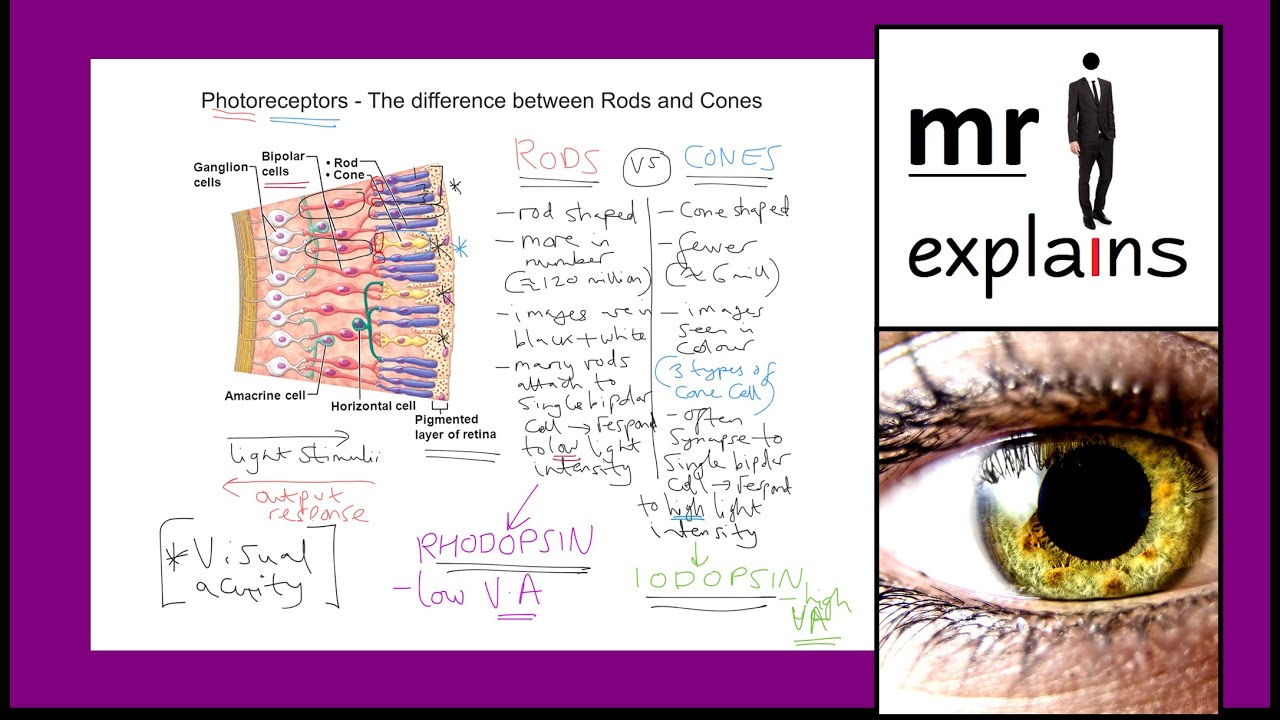 Photoreceptors - The difference between Rods and Cones
Ganglion
cells
Bipolar
cells
• Rod
• Cone
Amacrine cell
Horizontal cell
Pigmented
layer of retina
light stimulii
output
response
* Visual
acuity
RODS
- rod shaped
- more in
number
(≈120 million)
- images are in
black + white
- many rods
attach to
single bipolar
cell → respond
to low light
intensity
RHODOPSIN
- low V.A
VS
CONES
- Cone shaped
- fewer
(≈ 6 mill)
- images
seen in
colour
(3 types of
cone cell)
- often
synapse to
single bipolar
cell → respond
to high light
intensity
IODOPSIN
- high
VA
mr
explains